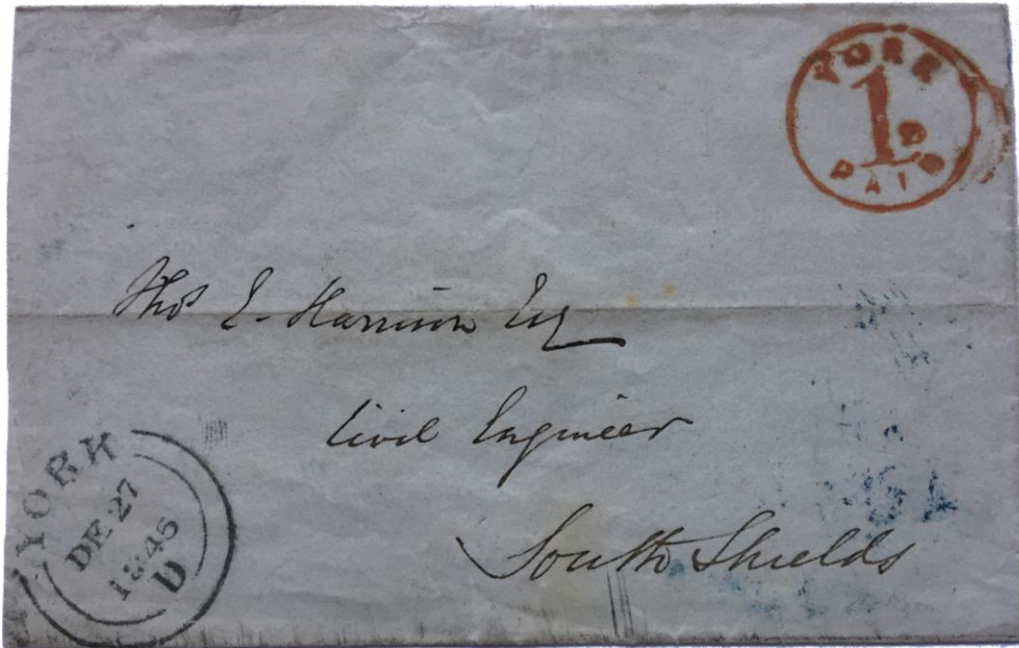 YORK
1D
PAID
Thos E. Harrison Esq
Civil Engineer
South Shields
YORK
DE 27
1845
D